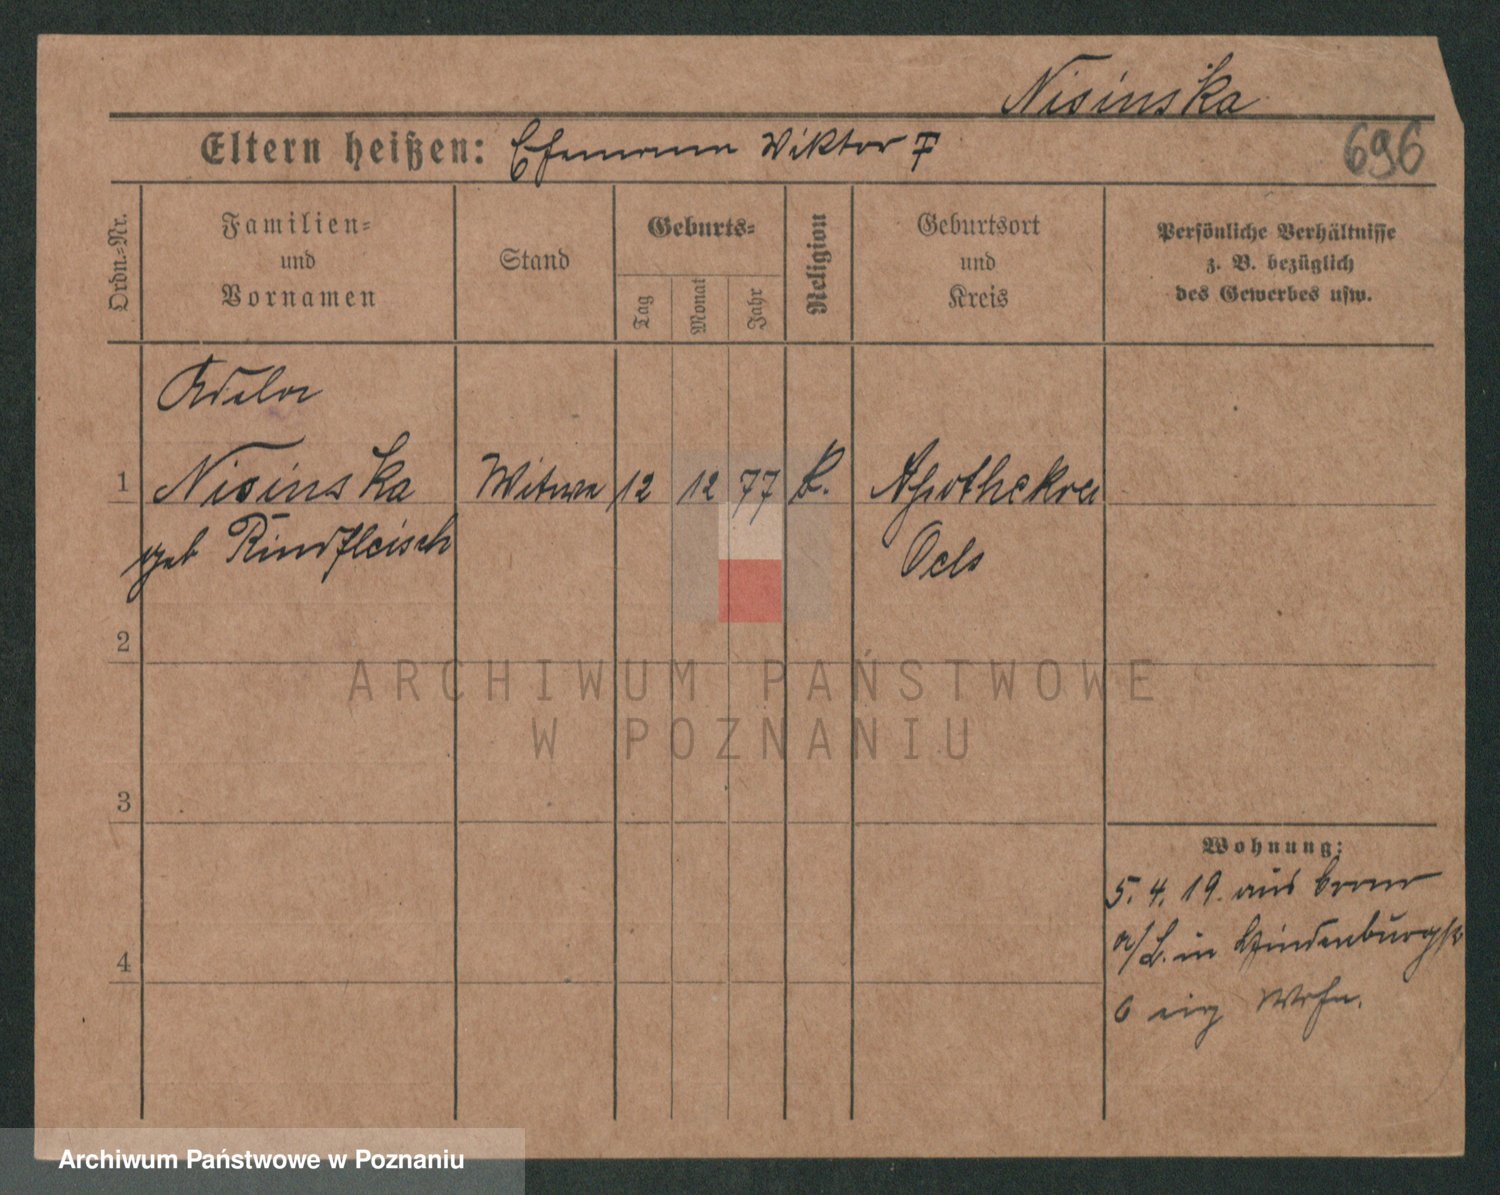 Nisinska
Eltern heißen: Ehemann Wiktor
696
Ordn.-Nr.
Familien-
und
Vornamen
Stand
Geburts-
Tag
Monat
Jahr
Religion
Geburtsort
und
Kreis
Persönliche Verhältnisse
z. B. bezüglich
des Gewerbes usw.
Adela
1 Nisinska Witwe 12 12 77 k. Apothekrei
geb Rindfleisch Oels
2
3
4
Wohnung:
5. 4. 19. aus
a/L. in Hindenburgstr
6 eig Wohn.
ARCHIWUM PAŃSTWOWE
W POZNANIU
Archiwum Państwowe w Poznaniu